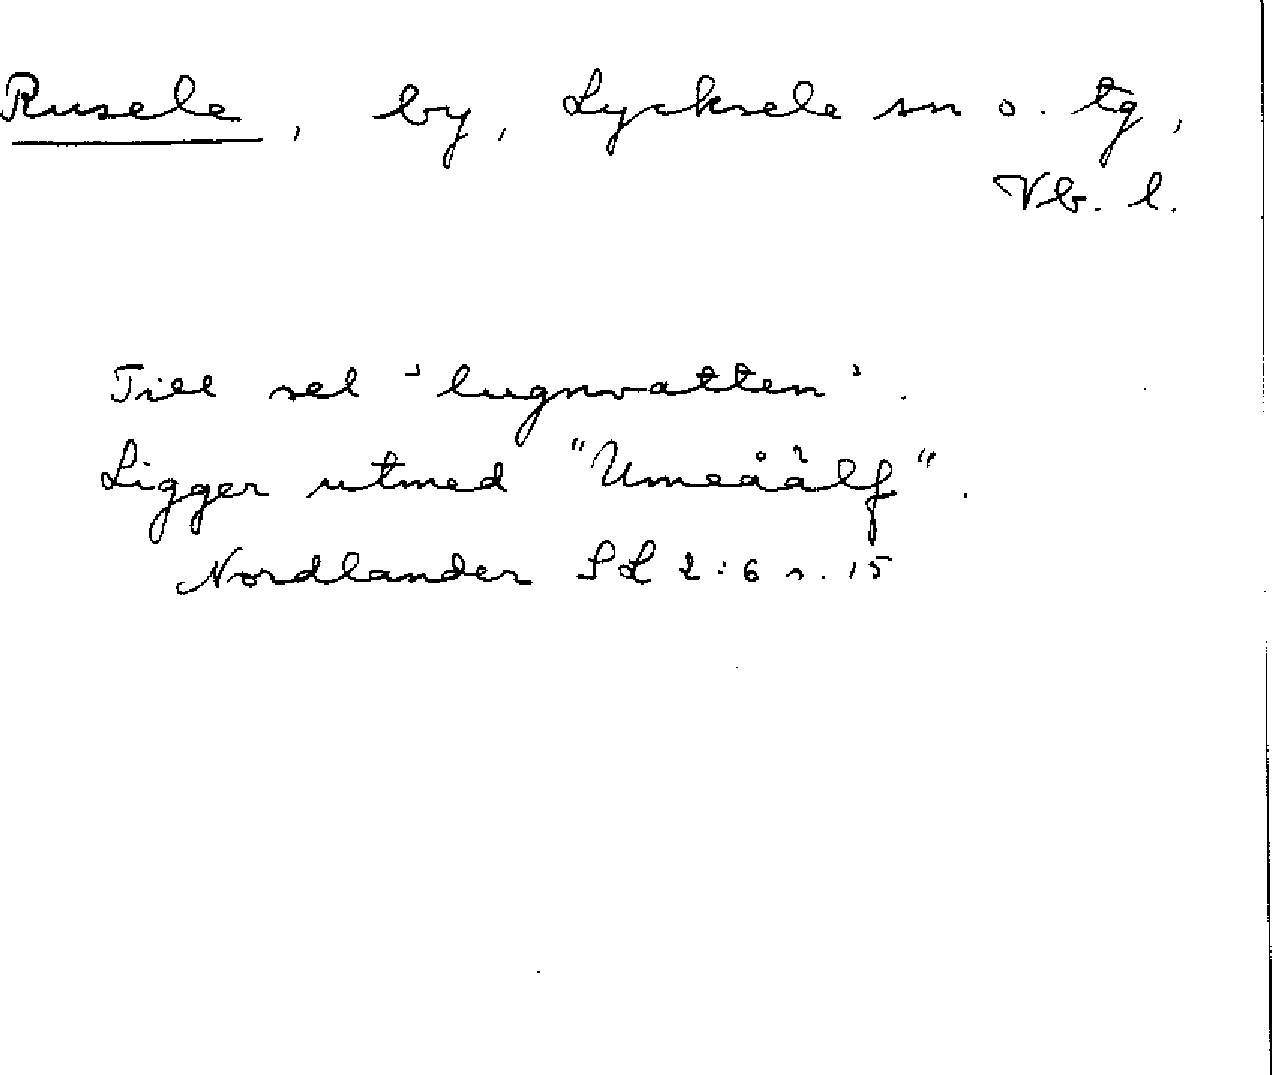 Rusele, by, Lycksele sn o. tg,
Vb. l.
Till sel 'lugnvatten'.
Ligger utmed "Umeåälf".
Nordlander SL 2:6 s. 15